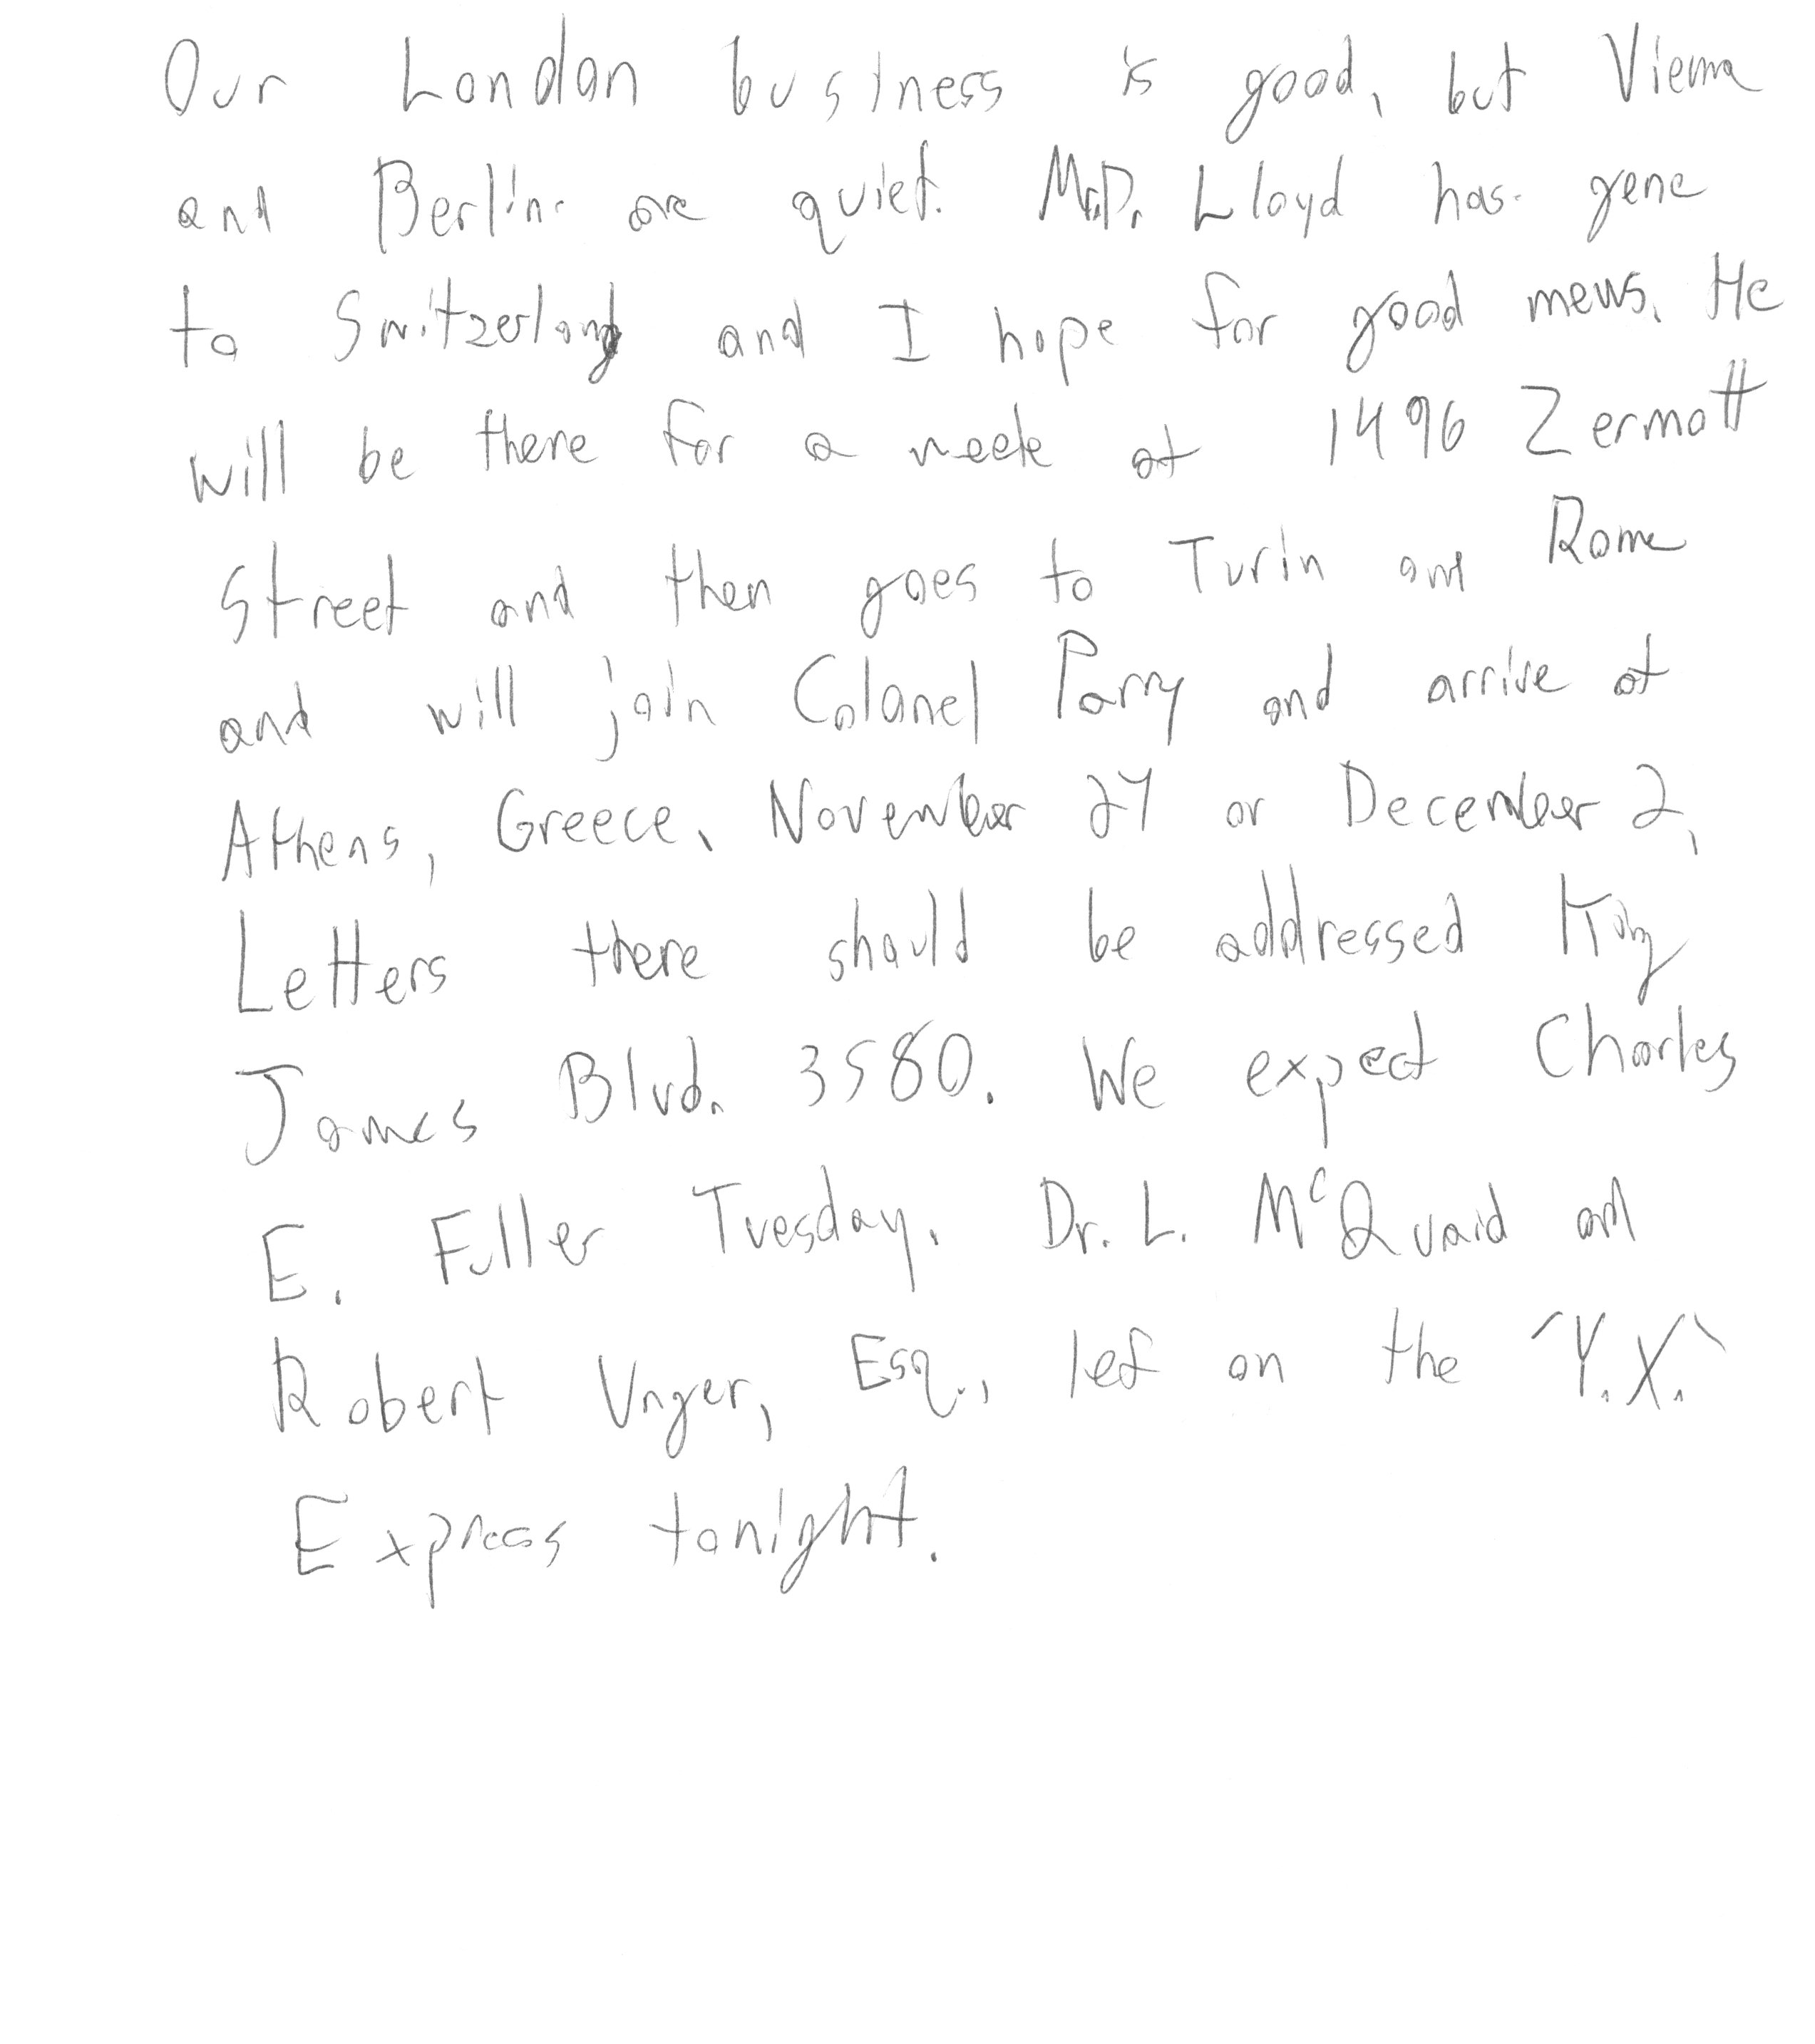 Our London business is good, but Vienna
and Berlin are quiet. Mr. D. Lloyd has gone
to Switzerland and I hope for good news. He
will be there for a week at 1496 Zermott
Street and then goes to Turin and Rome
and will join Colonel Parry and arrive at
Athens, Greece, November 27 or December 2,
Letters there should be addressed King
James Blvd. 3580. We expect Charles
E. Fuller Tuesday. Dr. L. McQuaid and
Robert Unger, Esq., left on the "Y.X."
Express tonight.